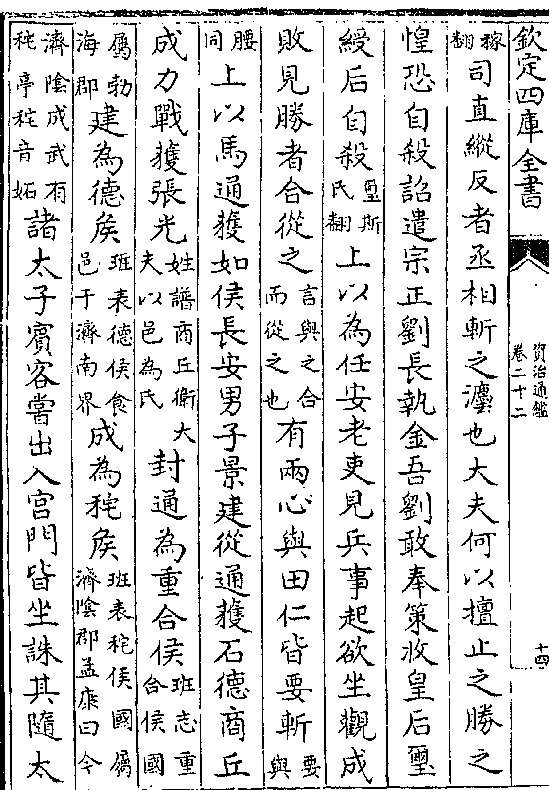 欽定四庫全書
資治通鑑
卷二十二
十四
稼翻司直縱反者丞相斬之灋也大夫何以擅止之勝之
惶恐自殺詔遣宗正劉長執金吾劉敢奉策收皇后璽
綬后自殺璽斯氏翻上以為任安老吏見兵事起欲坐觀成
敗見勝者合從之言與之合而從之也有兩心與田仁皆要斬要與
腰同上以馬通獲如侯長安男子景建從通獲石德商丘
成力戰獲張光姓譜商丘衛大夫以邑為氏封通為重合侯班志重合侯國
屬勃海郡建為德矦班表德侯食邑于濟南界成為秺矦班表秺侯國屬濟陰郡孟康曰今
濟陰成武有秺亭秺音妬諸太子賓客嘗出入宫門皆坐誅其隨太